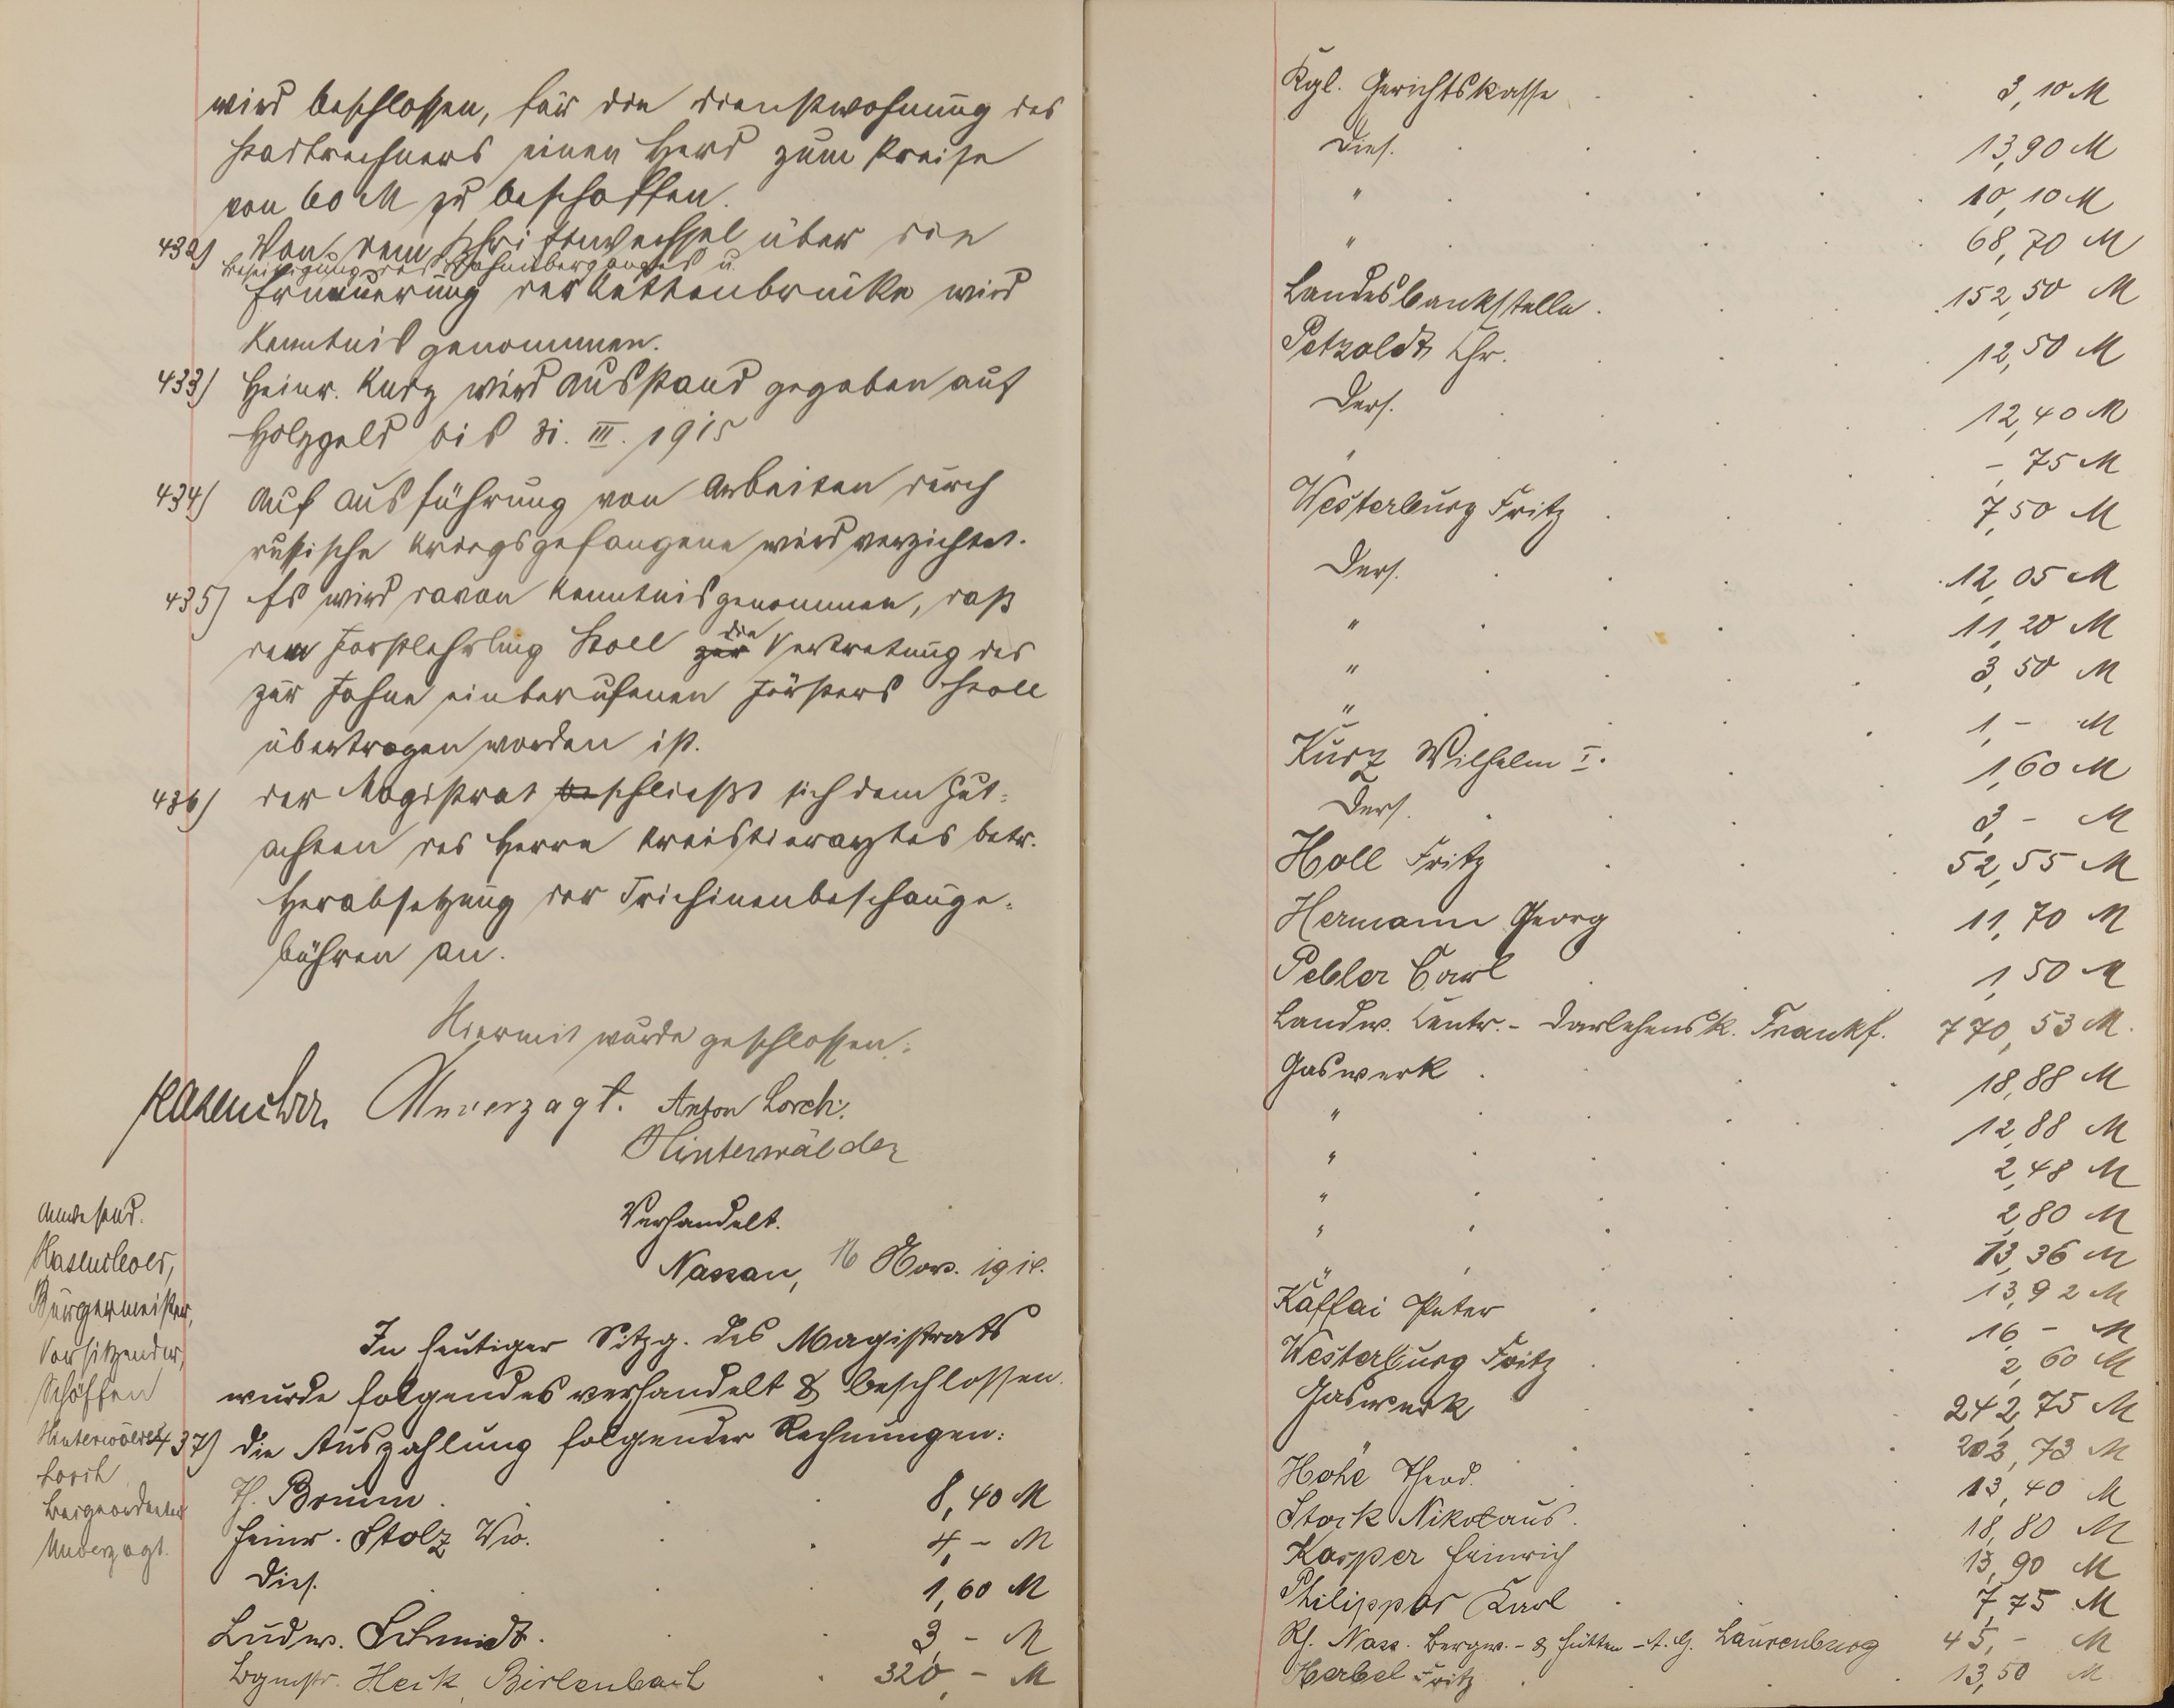 wird beschlossen, für die Dienstwohnung des
Stadtrechners einen Herd zum Preise
von 60 M zu beschaffen.
432) Von dem Schriftwechsel über die
Beseitigung des Bahnüberganges u.
Erneuerung der Kettenbrücke wird
Kenntnis genommen.
433) Heinr. Kurz wird Ausstand gegeben auf
Holzgeld bis 31. III. 1915
434) Auf Ausführung von Arbeiten durch
russische Kriegsgefangene wird verzichtet.
435) Es wird davon Kenntnis genommen, daß
dem Forstlehrling Stoll zur die Vertretung des
zur Fahne einberufenen Försters Stoll
übertragen worden ist.
436) Der Magistrat beschließt sich dem Gut-
achten des Herrn Kreistierarztes betr.
Herabsetzung der Trichinenbeschauge-
bühren an.
Hiermit wurde geschlossen.
Hasenclever. Unverzagt. Anton Lorch.
Hinterwälder
Anwesend.
Hasenclever,
Bürgermeister,
Vorsitzender,
Schöffen
Hinterwälder
Lorch
Beigeordneter
Unverzagt.
Verhandelt.
Nassau, 16 Nov. 1914.
In heutiger Sitzg. des Magistrats
wurde folgendes verhandelt & beschlossen.
437) Die Auszahlung folgender Rechnungen:
Th. Brumm . 8,40 M
Heinr. Stolz Ww. 4,- M
Dies. 1,60 M
Ludw. Schmidt. 3,- M
Bgmstr. Heck, Birlenbach 320,- M
Kgl. Gerichtskasse 3,10 M
Dies. 13,90 M
" 10,10 M
" 68,70 M
Landesbankstelle . 152,50 M
Petzoldt Chr. 12,50 M
Ders. 12,40 M
" -,75 M
Westerburg Fritz 7,50 M
Ders. 12,05 M
" 11,20 M
" 3,50 M
" 1,- M
Kurz Wilhelm I. 1,60 M
Ders. 3,- M
Holl Fritz 52,55 M
Hermann Georg 11,70 M
Pebler Carl 1,50 M
Landw. Centr.- Darlehensk. Frankf. 770,53 M.
Gaswerk 18,88 M
" 12,88 M
" 2,48 M
" 2,80 M
" 13,36 M
" 13,92 M
Kaffai Peter 16,- M
Westerburg Fritz 2,60 M
Gaswerk 242,75 M
" 203,73 M
Hohe Theod. 13,40 M
Stock Nikolaus. 18,80 M
Kasper Heinrich 13,90 M
Philippar Karl 7,75 M
Rh. Nass. Bergw.- & Hütten-A.G. Laurenburg 45,- M
Herbel Fritz 13,50 M